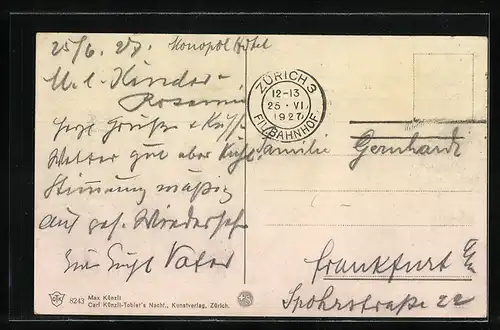 25/6. 27. Monopol Hotel
M. l. Kinder
Rosemi
herzl Grüße & Küsse
Wetter gut aber kühl
Stimmung mäßig
Auf ges. Wiedersehn
Vater
ZÜRICH 3
12-13
25. VI.
1927
FIL. BAHNHOF
Familie Gernhardt
Frankfurt a/M
Spohrstraße 22
8243 Max Künzli
Carl Künzli-Tobler's Nachf., Kunstverlag, Zürich.